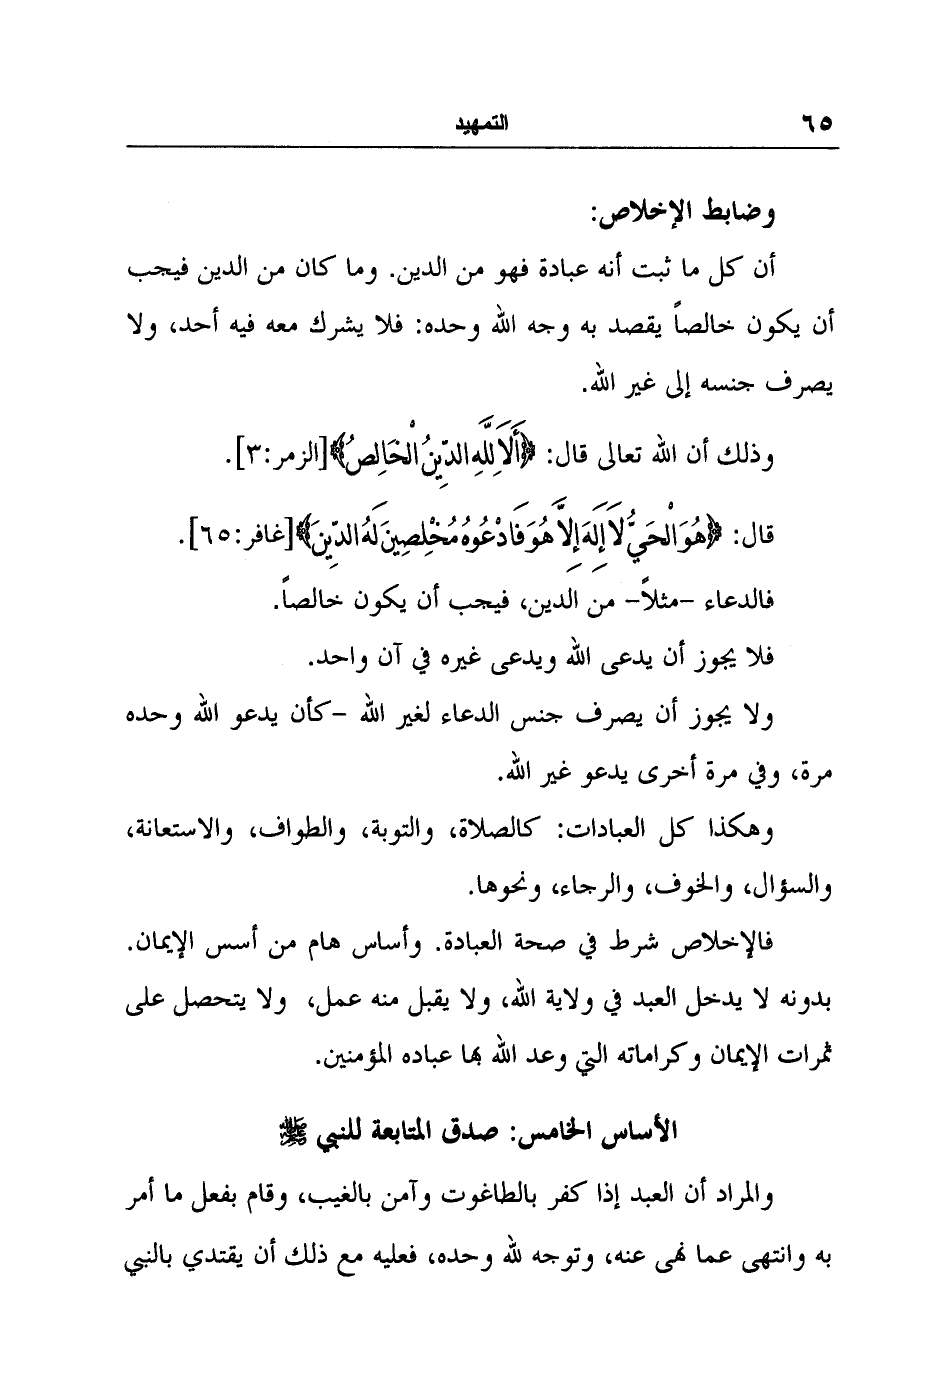 ٦٥ التمهيد
وضابط الإخلاص:
أن كل ما ثبت أنه عبادة فهو من الدين. وما كان من الدين فيجب
أن يكون خالصاً يقصد به وجه الله وحده: فلا يشرك معه فيه أحد، ولا
يصرف جنسه إلى غير الله.
وذلك أن الله تعالى قال: ﴿أَلَا لِلَّهِ الدِّينُ الْخَالِصُ﴾[الزمر:٣].
قال: ﴿هُوَ الْحَيُّ لَا إِلَهَ إِلَّا هُوَ فَادْعُوهُ مُخْلِصِينَ لَهُ الدِّينَ﴾[غافر:٦٥].
فالدعاء -مثلاً- من الدين، فيجب أن يكون خالصاً.
فلا يجوز أن يدعى الله ويدعى غيره في آن واحد.
ولا يجوز أن يصرف جنس الدعاء لغير الله -كأن يدعو الله وحده
مرة، وفي مرة أخرى يدعو غير الله.
وهكذا كل العبادات: كالصلاة، والتوبة، والطواف، والاستعانة،
والسؤال، والخوف، والرجاء، ونحوها.
فالإخلاص شرط في صحة العبادة. وأساس هام من أسس الإيمان.
بدونه لا يدخل العبد في ولاية الله، ولا يقبل منه عمل، ولا يتحصل على
ثمرات الإيمان وكراماته التي وعد الله بها عباده المؤمنين.
الأساس الخامس: صدق المتابعة للنبي ﷺ
والمراد أن العبد إذا كفر بالطاغوت وآمن بالغيب، وقام بفعل ما أمر
به وانتهى عما نهى عنه، وتوجه لله وحده، فعليه مع ذلك أن يقتدي بالنبي